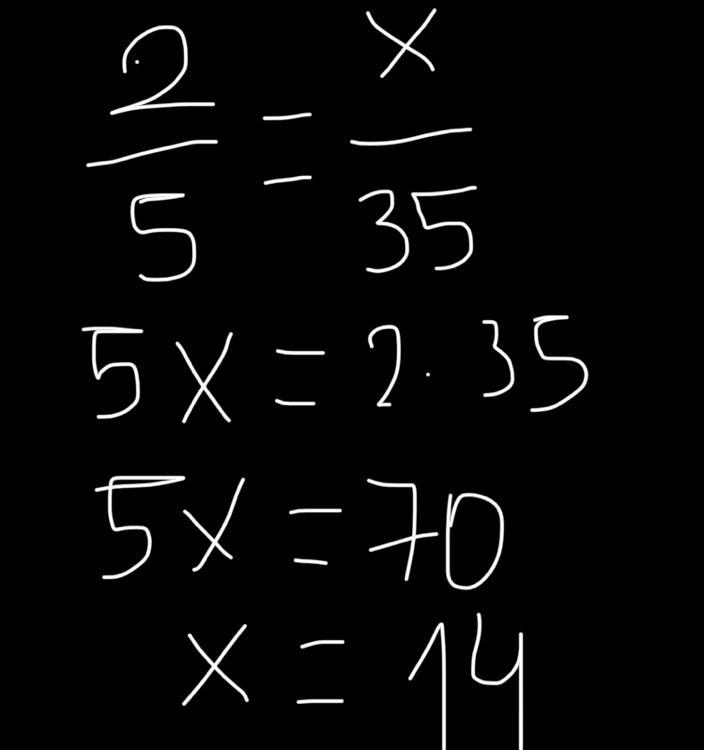 2/5 = x/35
5x = 2 · 35
5x = 70
x = 14